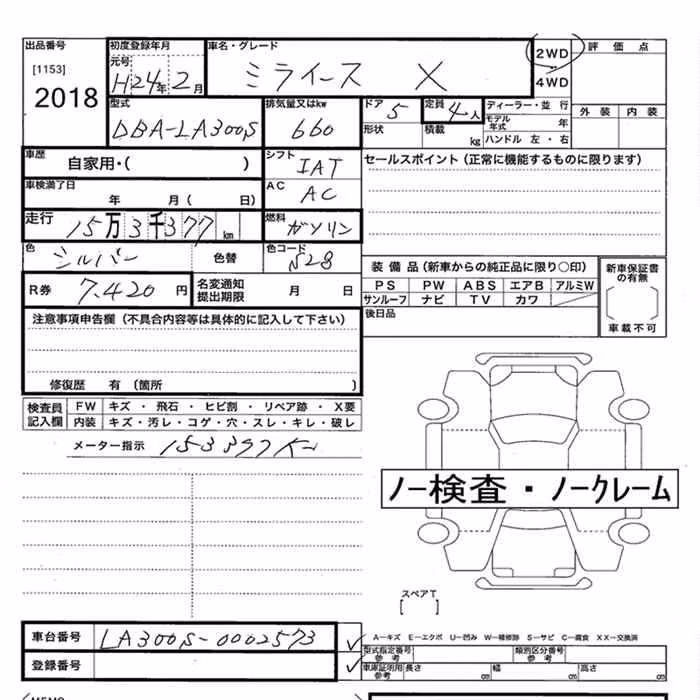 出品番号 初度登録年月 車名・グレード
[1153] 元号 2WD 評価点
2018 H24年 2月 ミライース X 4WD
型式 排気量又はkw ドア 定員 ディーラー・並行 外装 内装
DBA-LA300S 660 5 4人 モデル年式 年
形状 積載 kg ハンドル 左・右
車歴 自家用・( ) シフト IAT セールスポイント (正常に機能するものに限ります)
車検満了日 年 月( 日) AC AC
走行 15万3千377km 燃料 ガソリン
色 シルバー 色替 色コード S28
装備品 (新車からの純正品に限り○印) 新車保証書の有無
R券 7.420円 名変通知提出期限 月 日 PS PW ABS エアB アルミW
サンルーフ ナビ TV カワ
注意事項申告欄 (不具合内容等は具体的に記入して下さい) 後日品 車載不可
修復歴 有 (箇所 )
検査員記入欄 FW キズ・飛石・ヒビ割・リペア跡・X要
内装 キズ・汚レ・コゲ・穴・スレ・キレ・破レ
メーター指示 153397K
ノー検査・ノークレーム
スペアT
[ ]
車台番号 LA300S-0002573
A-キズ E-エクボ U-凹み W-補修跡 S-サビ C-腐食 XX-交換済
登録番号
型式指定番号参考 類別区分番号参考
車庫証明用参考 長さ cm 幅 cm 高さ cm
MEMO